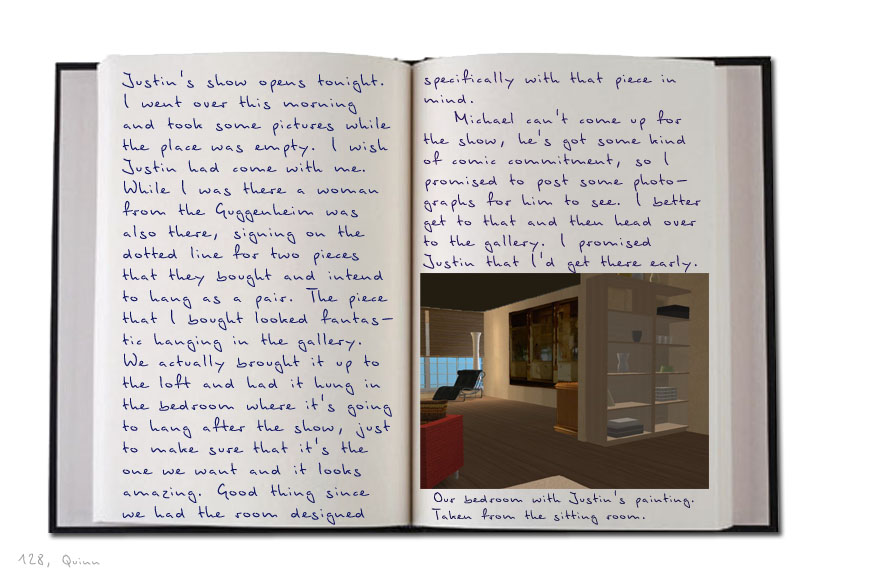 Justin's show opens tonight.
I went over this morning
and took some pictures while
the place was empty. I wish
Justin had come with me.
While I was there a woman
from the Guggenheim was
also there, signing on the
dotted line for two pieces
that they bought and intend
to hang as a pair. The piece
that I bought looked fantas-
tic hanging in the gallery.
We actually brought it up to
the loft and had it hung in
the bedroom where it's going
to hang after the show, just
to make sure that it's the
one we want and it looks
amazing. Good thing since
we had the room designed
specifically with that piece in
mind.
Michael can't come up for
the show, he's got some kind
of comic commitment, so I
promised to post some photo-
graphs for him to see. I better
get to that and then head over
to the gallery. I promised
Justin that I'd get there early.
Our bedroom with Justin's painting.
Taken from the sitting room.
128, Quinn